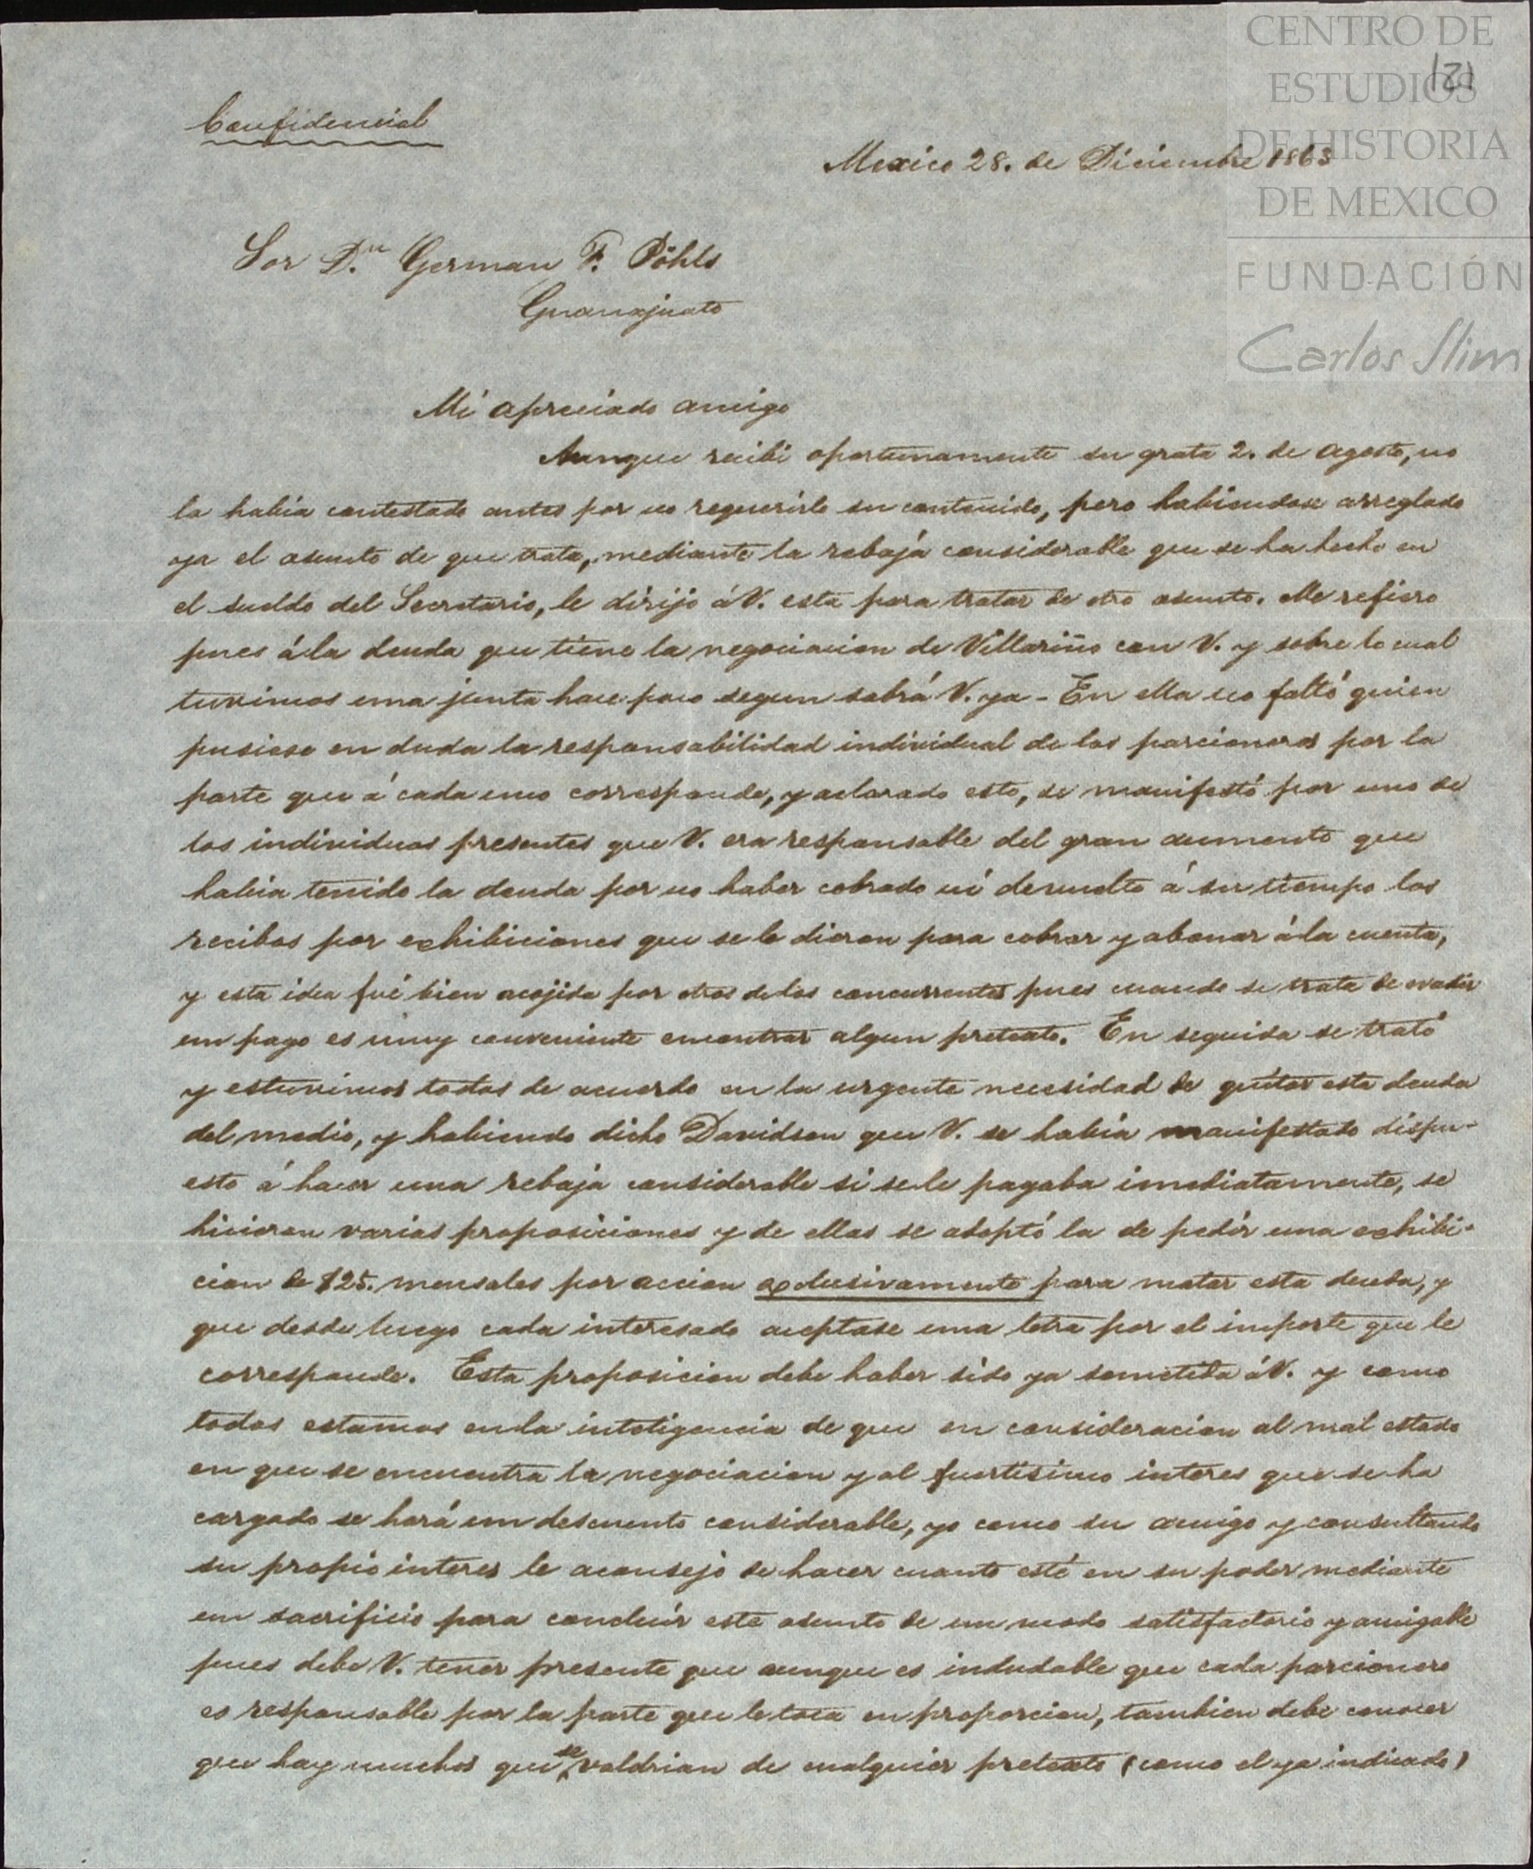 CENTRO DE
ESTUDIOS
DE HISTORIA
DE MEXICO
FUNDACIÓN
Carlos Slim
121
Confidencial
Mexico 28. de Diciembre 1863
Sor D.n German F. Pöhls
Guanajuato
Mi apreciado amigo
Aunque recibi oportunamente su grata 2. de Agosto, no
la habia contestado antes por no requerirlo su contenido, pero habiendose arreglado
ya el asunto de que trata, mediante la rebaja considerable que se ha hecho en
el sueldo del Secretario, le dirijo á V. esta para tratar de otro asunto. Me refiero
pues á la deuda que tiene la negociacion de Villariño con V. y sobre lo cual
tuvimos una junta hace poco segun sabrá V. ya - En ella no faltó quien
pusiese en duda la responsabilidad individual de los parcioneros por la
parte que á cada uno corresponde, y aclarado esto, se manifestó por uno de
los individuos presentes que V. era responsable del gran aumento que
habia tenido la deuda por no haber cobrado ni devuelto á su tiempo los
recibos por exhibiciones que se le dieron para cobrar y abonar á la cuenta,
y esta idea fué bien acojida por otros de los concurrentes pues cuando se trata de evadir
un pago es muy conveniente encontrar algun pretexto. En seguida se trató
y estuvimos todos de acuerdo en la urgente necesidad de quitar esta deuda
del medio, y habiendo dicho Davidson que V. se habia manifestado dispu-
esto á hacer una rebaja considerable si se le pagaba imediatamente, se
hicieron varias proposiciones y de ellas se adoptó la de pedir una exhibi-
cion de $25. mensales por accion exclusivamente para matar esta deuda, y
que desde luego cada interesado aceptase una letra por el importe que le
corresponde. Esta proposicion debe haber sido ya sometida á V. y como
todos estamos en la inteligencia de que en consideracion al mal estado
en que se encuentra la negociacion y al fuertisimo interes que se ha
cargado se hará un descuento considerable, yo como su amigo y consultando
su propio interes le aconsejo de hacer cuanto esté en su poder mediante
un sacrificio para concluir este asunto de un modo satisfactorio y amigable
pues debe V. tener presente que aunque es indudable que cada parcionero
es responsable por la parte que le toca en proporcion, tambien debe conocer
que hay muchos que se valdrian de cualquier pretexto (como el ya indicado)